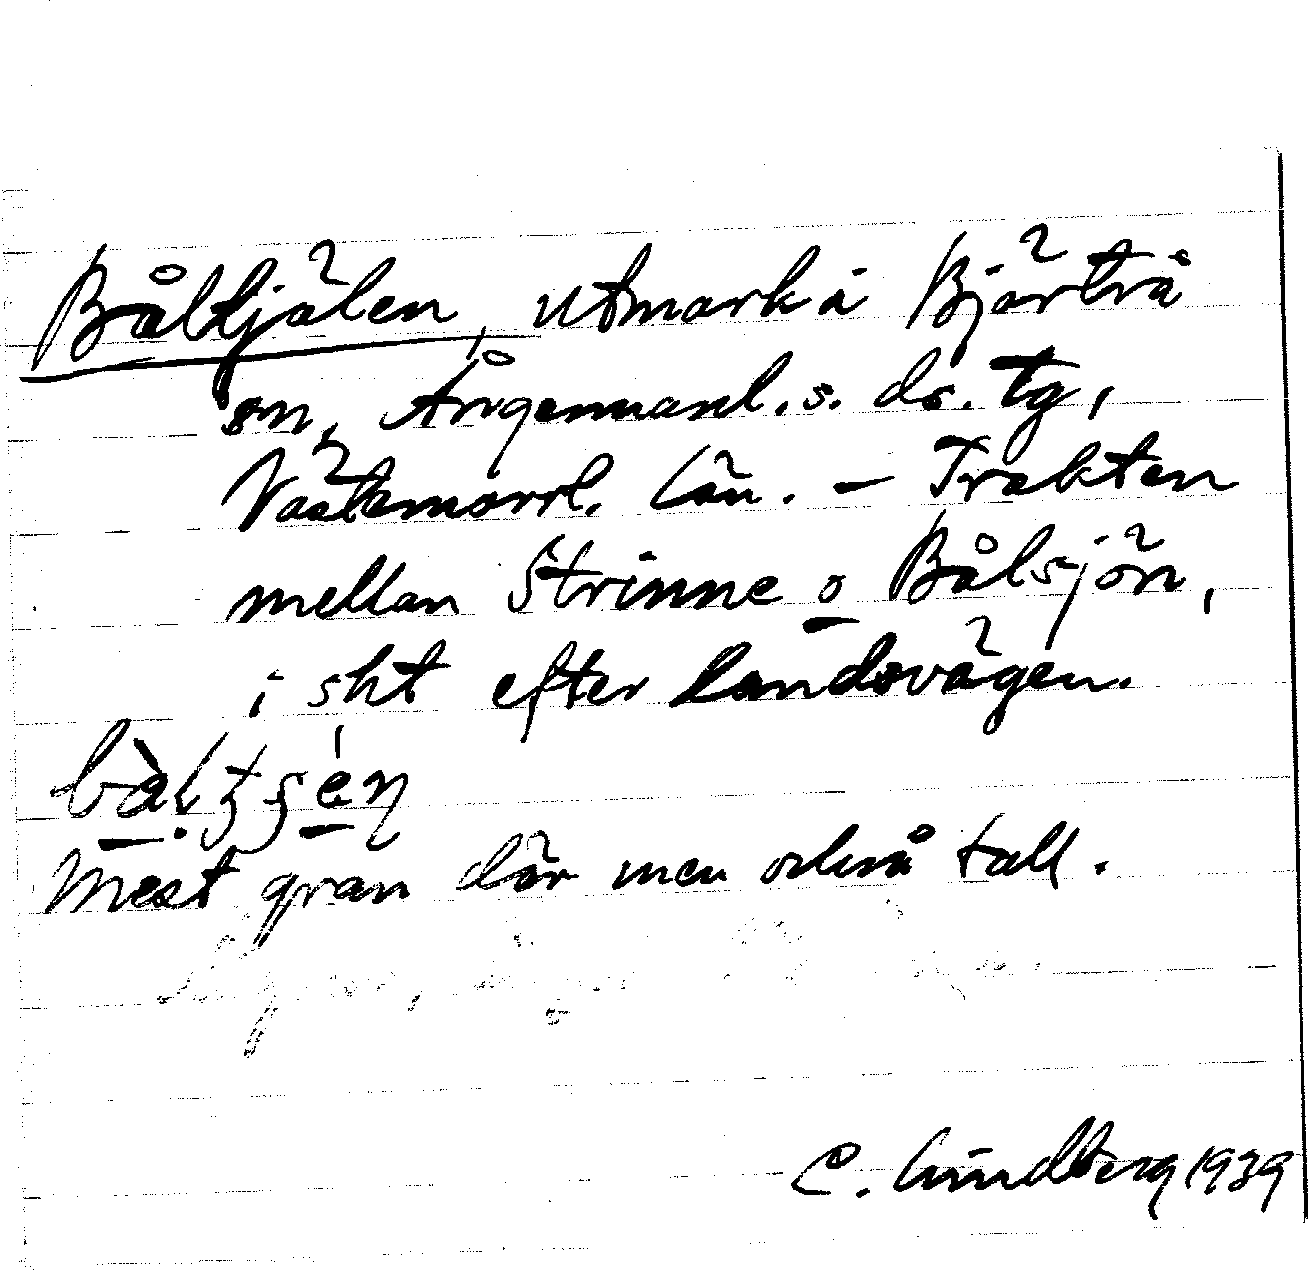 Båltjälen, utmark i Bjärtrå
sn, Ångermanl. s. ds. tg,
Västernorrl. län. – Trakten
mellan Strinne o Bålsjön,
i sht efter landsvägen.
Mest gran där men också tall.
C. Lundberg 1939